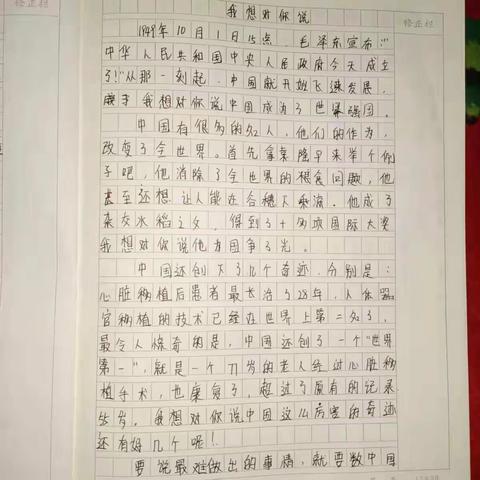 我想对你说
修正栏
修正栏
1949年10月1日15点,毛泽东宣布:"
中华人民共和国中央人民政府今天成立
了!"从那一刻起,中国就开始飞速发展,
我想对你说中国成为了世界强国。
中国有很多的名人,他们的作为,
改变了全世界。首先拿袁隆平来举个例
子吧,他消除了全世界的粮食问题,他
甚至还想让人能在谷穗下乘凉。他成了
杂交水稻之父,得到了十多项国际大奖
我想对你说他为国争了光。
中国还创下了几个奇迹,分别是:
心脏移植后患者最长治了28年,人体器
官移植的技术已经在世界上第二名了,
最令人惊奇的是,中国还创了一个"世界
第一",就是一个77岁的老人经过心脏移
植手术,也康复了,超过了原有的记录
55岁。我想对你说中国这么厉害的奇迹
还有好几个呢!
要说最难做出的事情,就要数中国